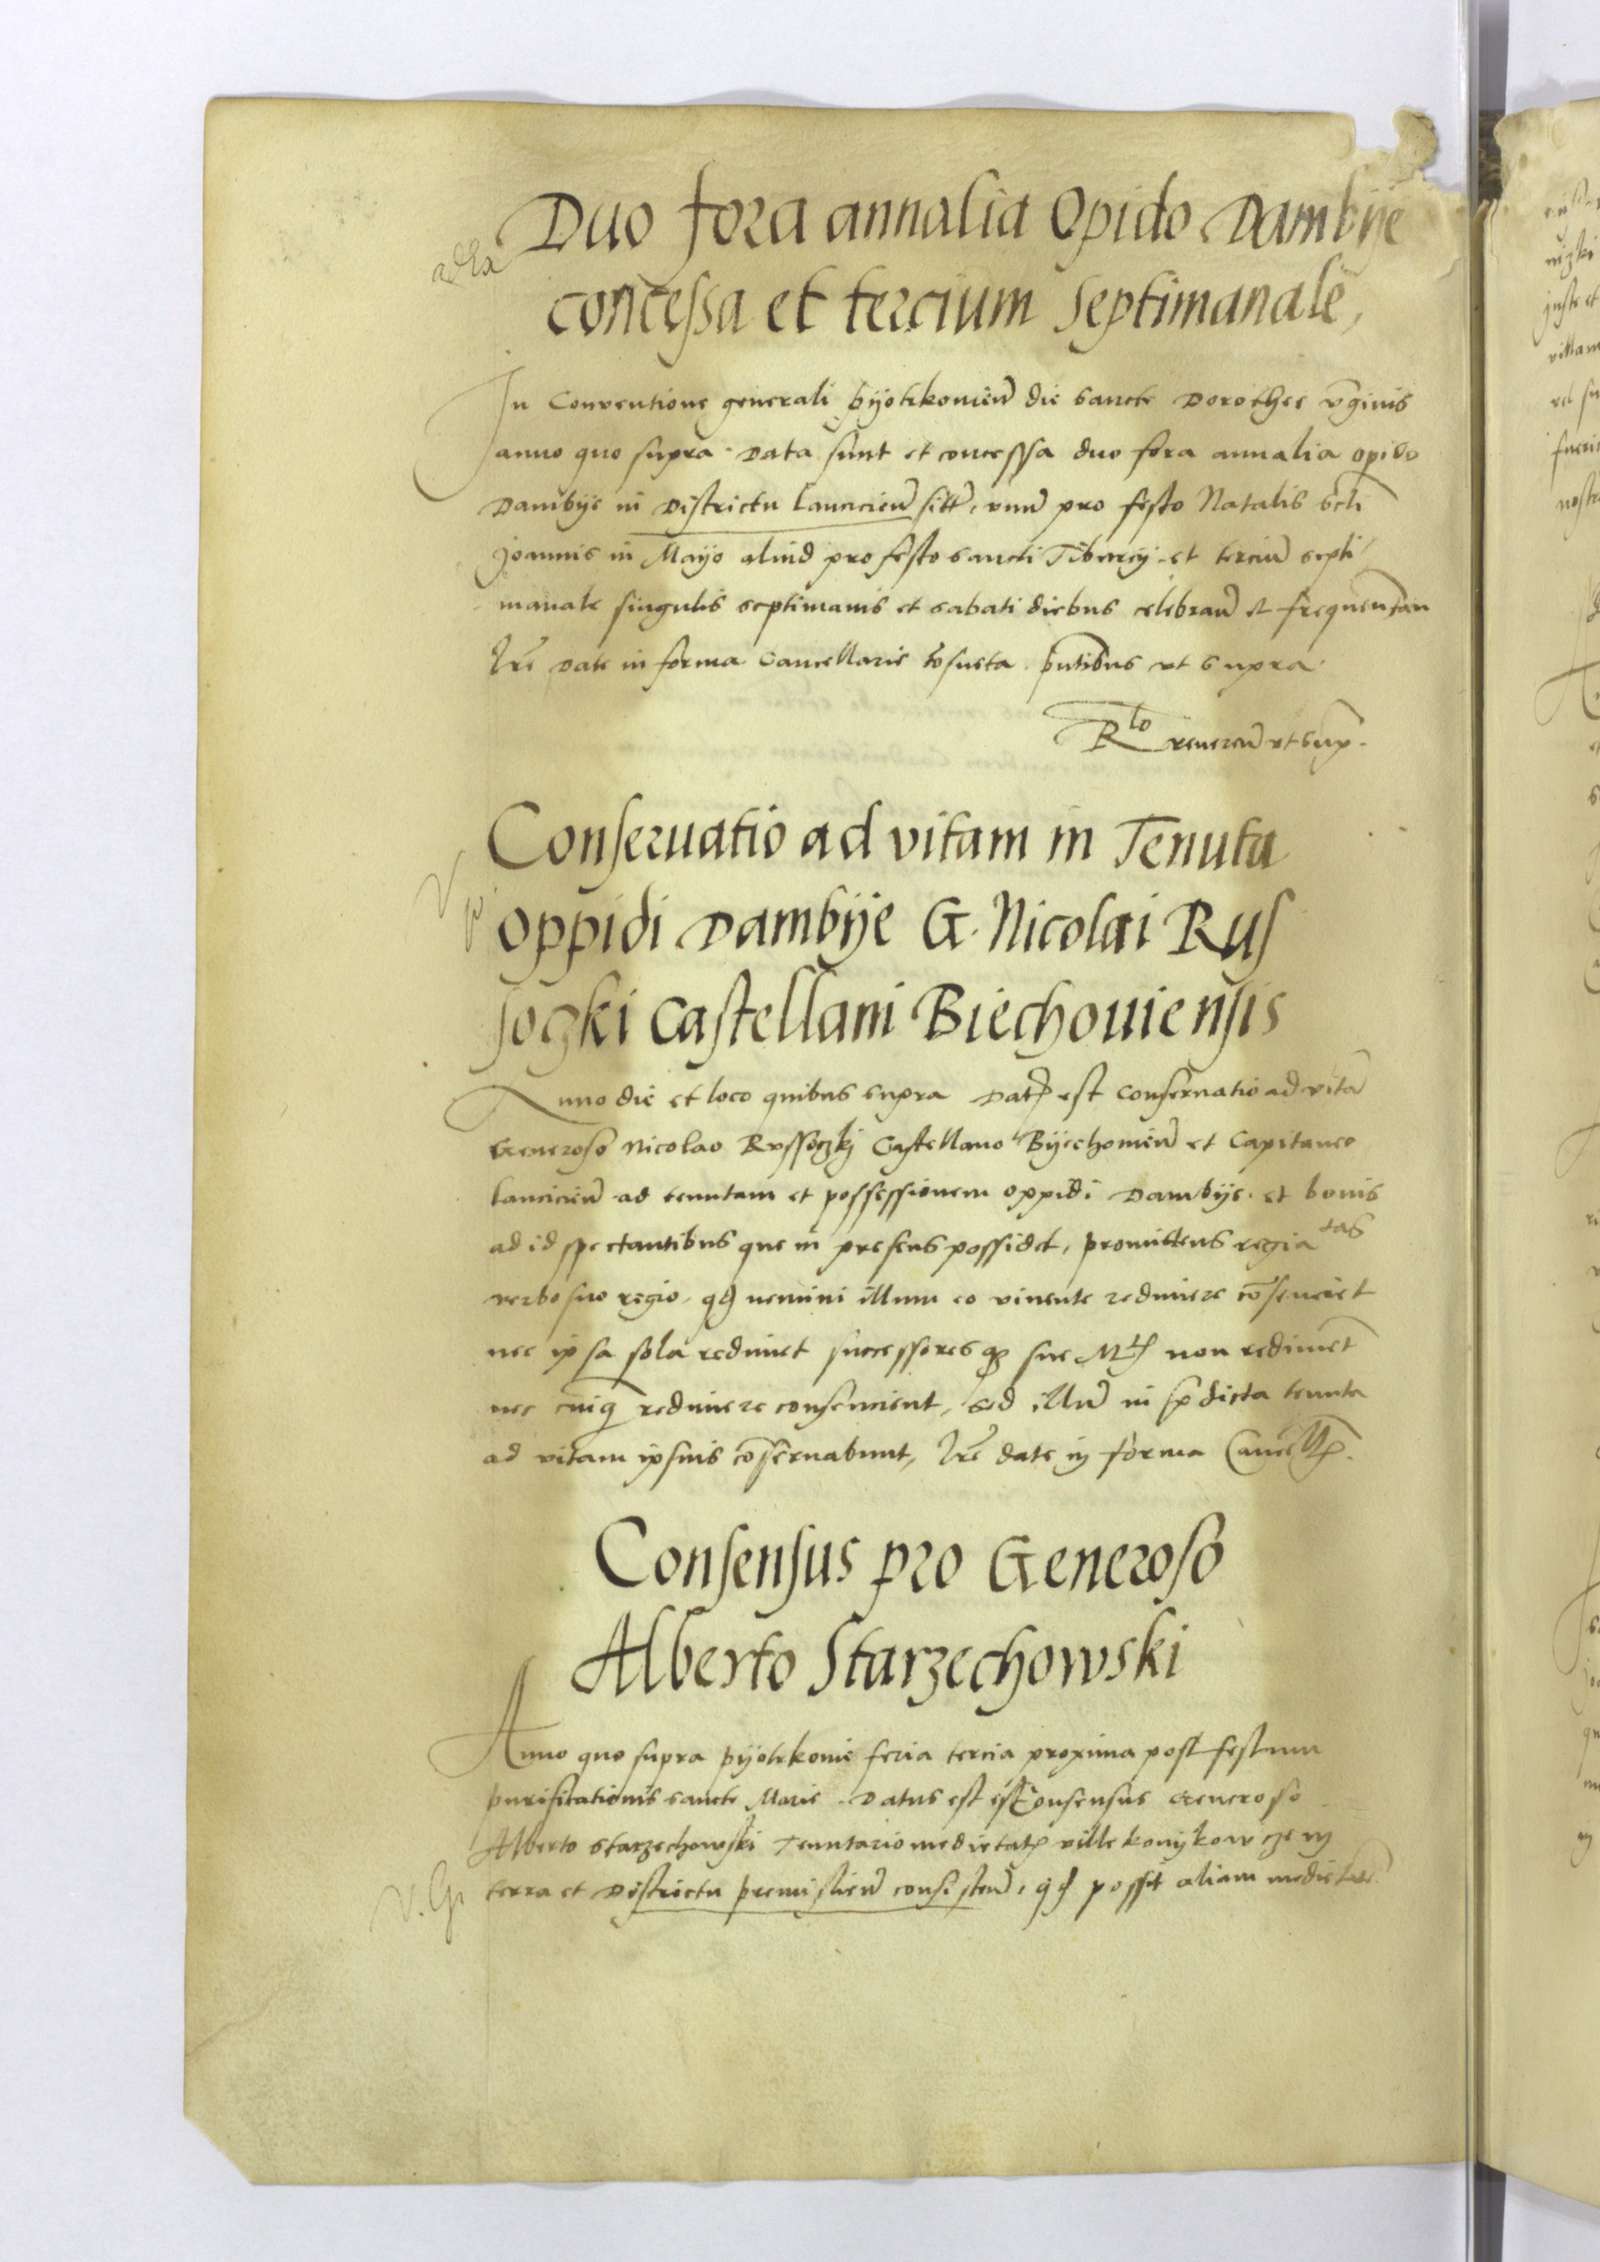 Duo fora annalia Opido Dambÿe
concessa et tercium septimanale,
In Conventione generali pyotrkovień die sancte Dorothee v̄ginis
anno quo supra. Data sunt et concessa duo fora annalia opido
Dambÿe in Districtu lancicień sitū, vnū pro festo Natalis scti
Joannis in Mayo aliud pro festo sancti Tiburcÿ. et terciū septi
manale singulis septimanis et sabati diebus celebrań et frequentan
lrē date in forma Cancellarie cōsueta. pn̄tibus vt supra.
Rlo reveren̄ vt sup.
Conseruatio ad vitam in Tenuta
oppidi Dambÿe G. Nicolai Rus
soczki castellani Biechouiensis
Anno die et loco quibus supra Data est conservatio ad vitā
Generoso Nicolao Russoczkj Castellano Byechovień et Capitaneo
lancicień ad tenutam et possessionem oppidi Dambÿe. et bonis
ad id spectantibus que in presens possidet, promittens regia tas
verbo suo regio. qd nemini illum eo vivente redimere cōsenciet
nec ipsa sola redimet successores qz sue Mtis non rediment
nec cuiq redimere consencient, sed illū in p̄dicta tenuta
ad vitam ipsius cōservabunt, lrē date in forma Cancell.
Consensus pro Generoso
Alberto Starzechowski
Anno quo supra pyotrkovie feria tercia proxima post festum
purificationis sancte Marie. Datus est Consensus Generoso
Alberto starzechowski Tenutario medietatis ville konykow
terra et Districtu premislień consisteń, qd possit aliam medietatē